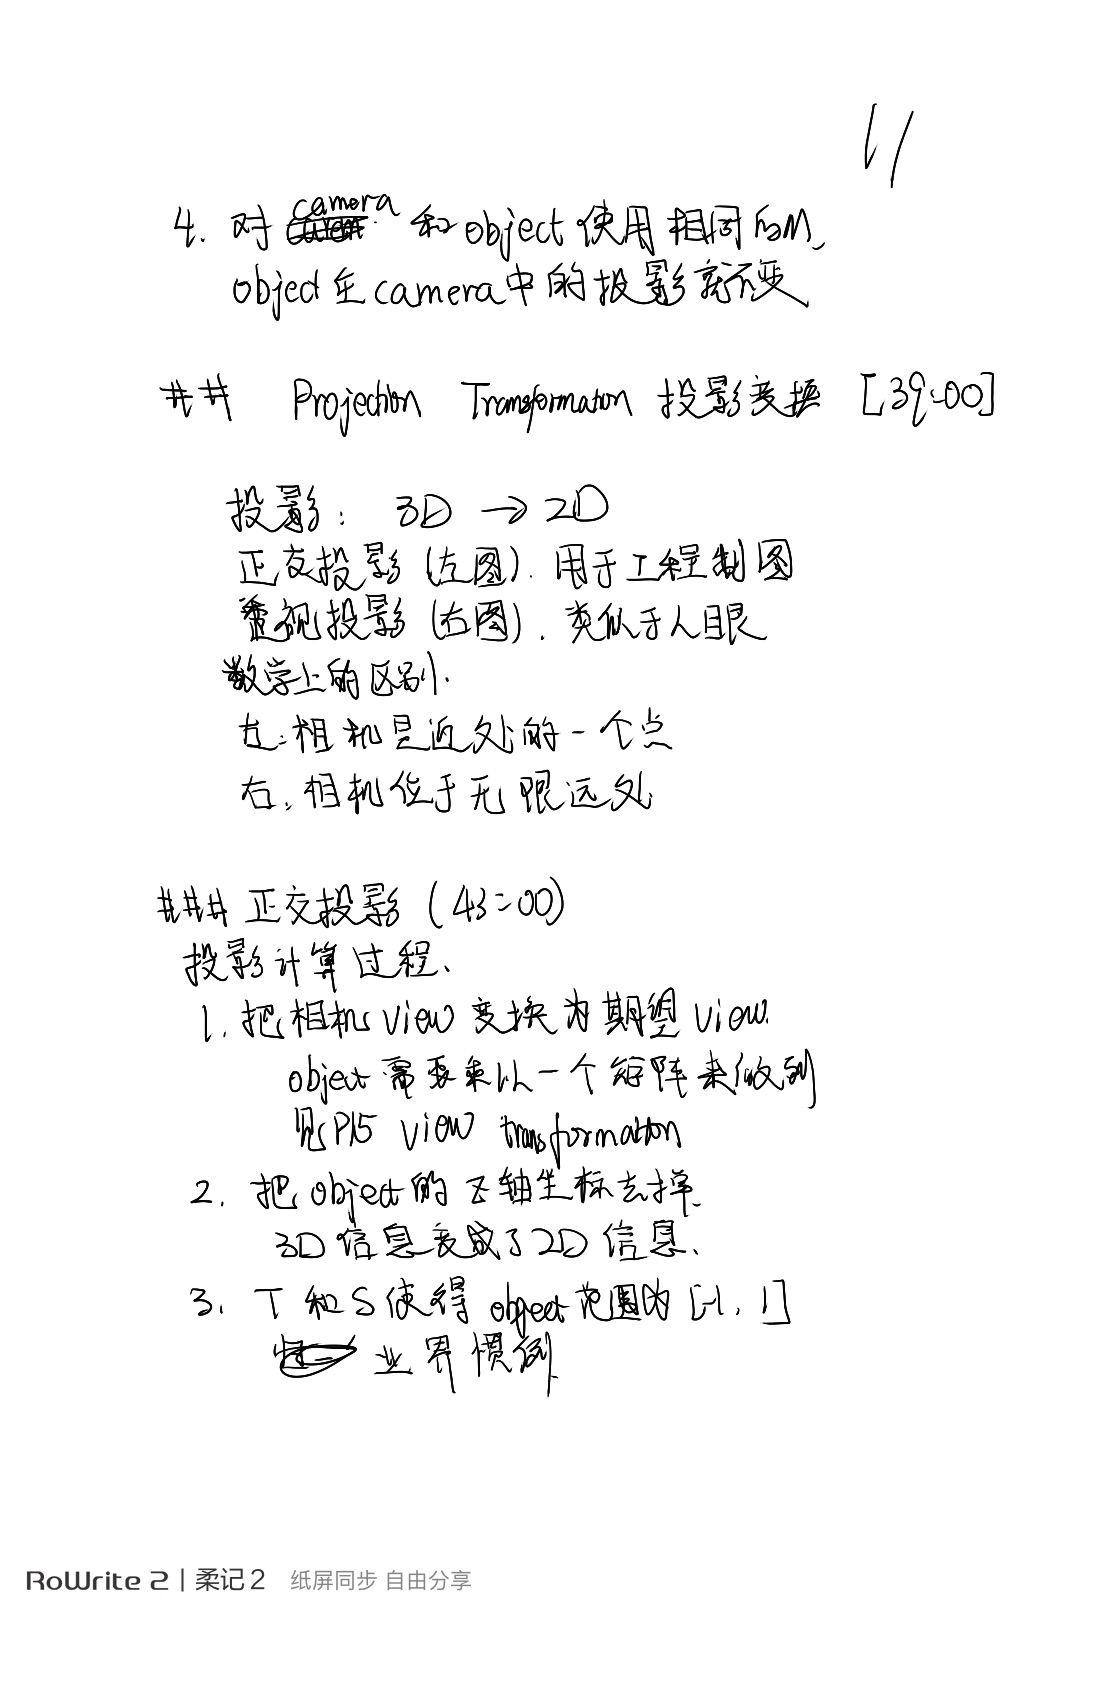 11
4. 对camera和object使用相同的M,
object在camera中的投影就不变
## Projection Transformation 投影变换 [39:00]
投影: 3D → 2D
正交投影(左图). 用于工程制图
透视投影(右图). 类似于人眼
数学上的区别.
左:相机是近处的一个点
右:相机位于无限远处
### 正交投影 (43:00)
投影计算过程.
1. 把相机view变换为期望view.
object需要乘以一个矩阵来做到
见P15 view transformation
2. 把object的Z轴坐标去掉.
3D信息变成了2D信息.
3. T和S使得object范围为[-1, 1]
业界惯例
RoWrite 2 | 柔记2 纸屏同步 自由分享